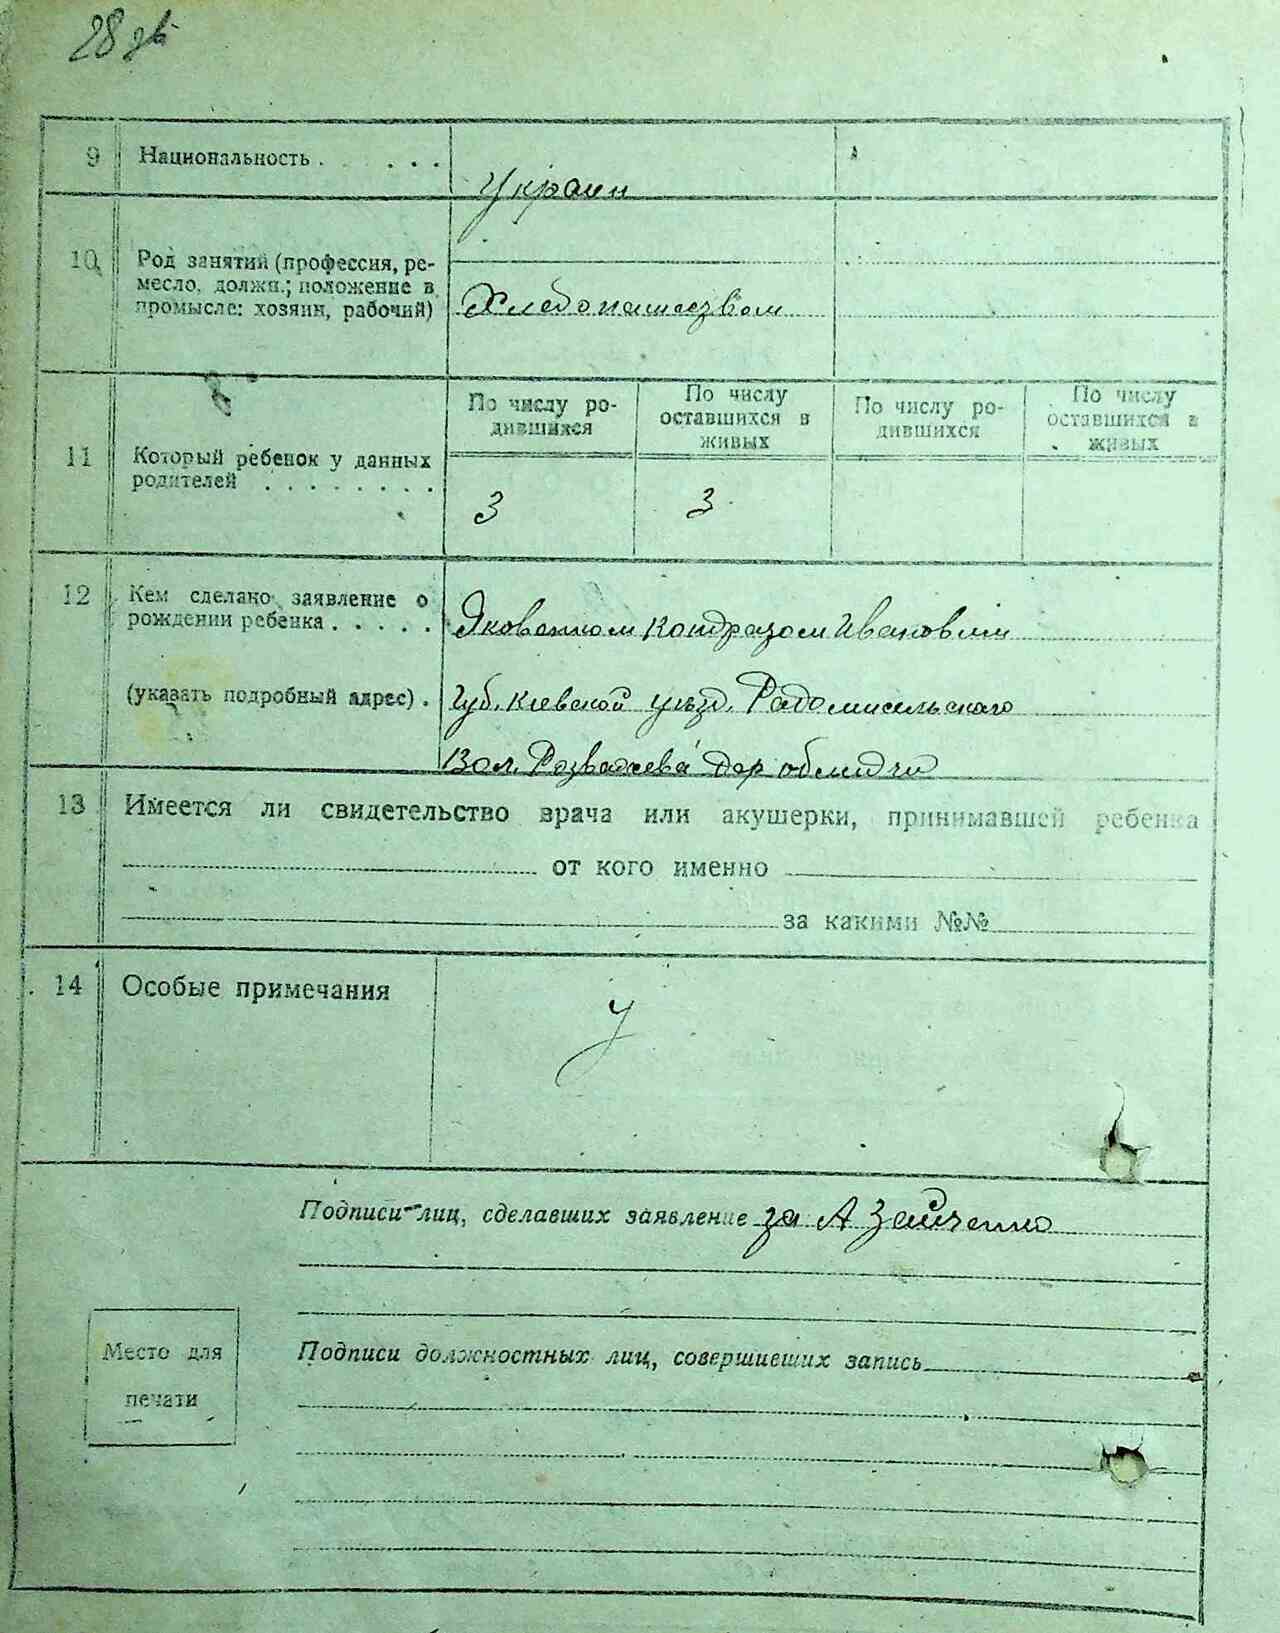 28 зв
9 Национальность . . . . .
Украин
10 Род занятий (профессия, ре-
месло, должн.; положение в
промысле: хозяин, рабочий)
Хлебопашезвом
11 Который ребенок у данных
родителей . . . . . . . .
По числу ро-
дившихся
По числу
оставшихся в
живых
По числу ро-
дившихся
По числу
оставшихся в
живых
3 3
12 Кем сделано заявление о
рождении ребенка . . . . .
Яковенком Кондразом Ивановим
(указать подробный адрес) .
Губ. Киевской уезд. Радомисельскаго
Вол. Розважева дер. обмидчи
13 Имеется ли свидетельство врача или акушерки, принимавшей ребенка
от кого именно
за какими №№
14 Особые примечания
У
Подписи лиц, сделавших заявление за А Зайченко
Место для
печати
Подписи должностных лиц, совершивших запись